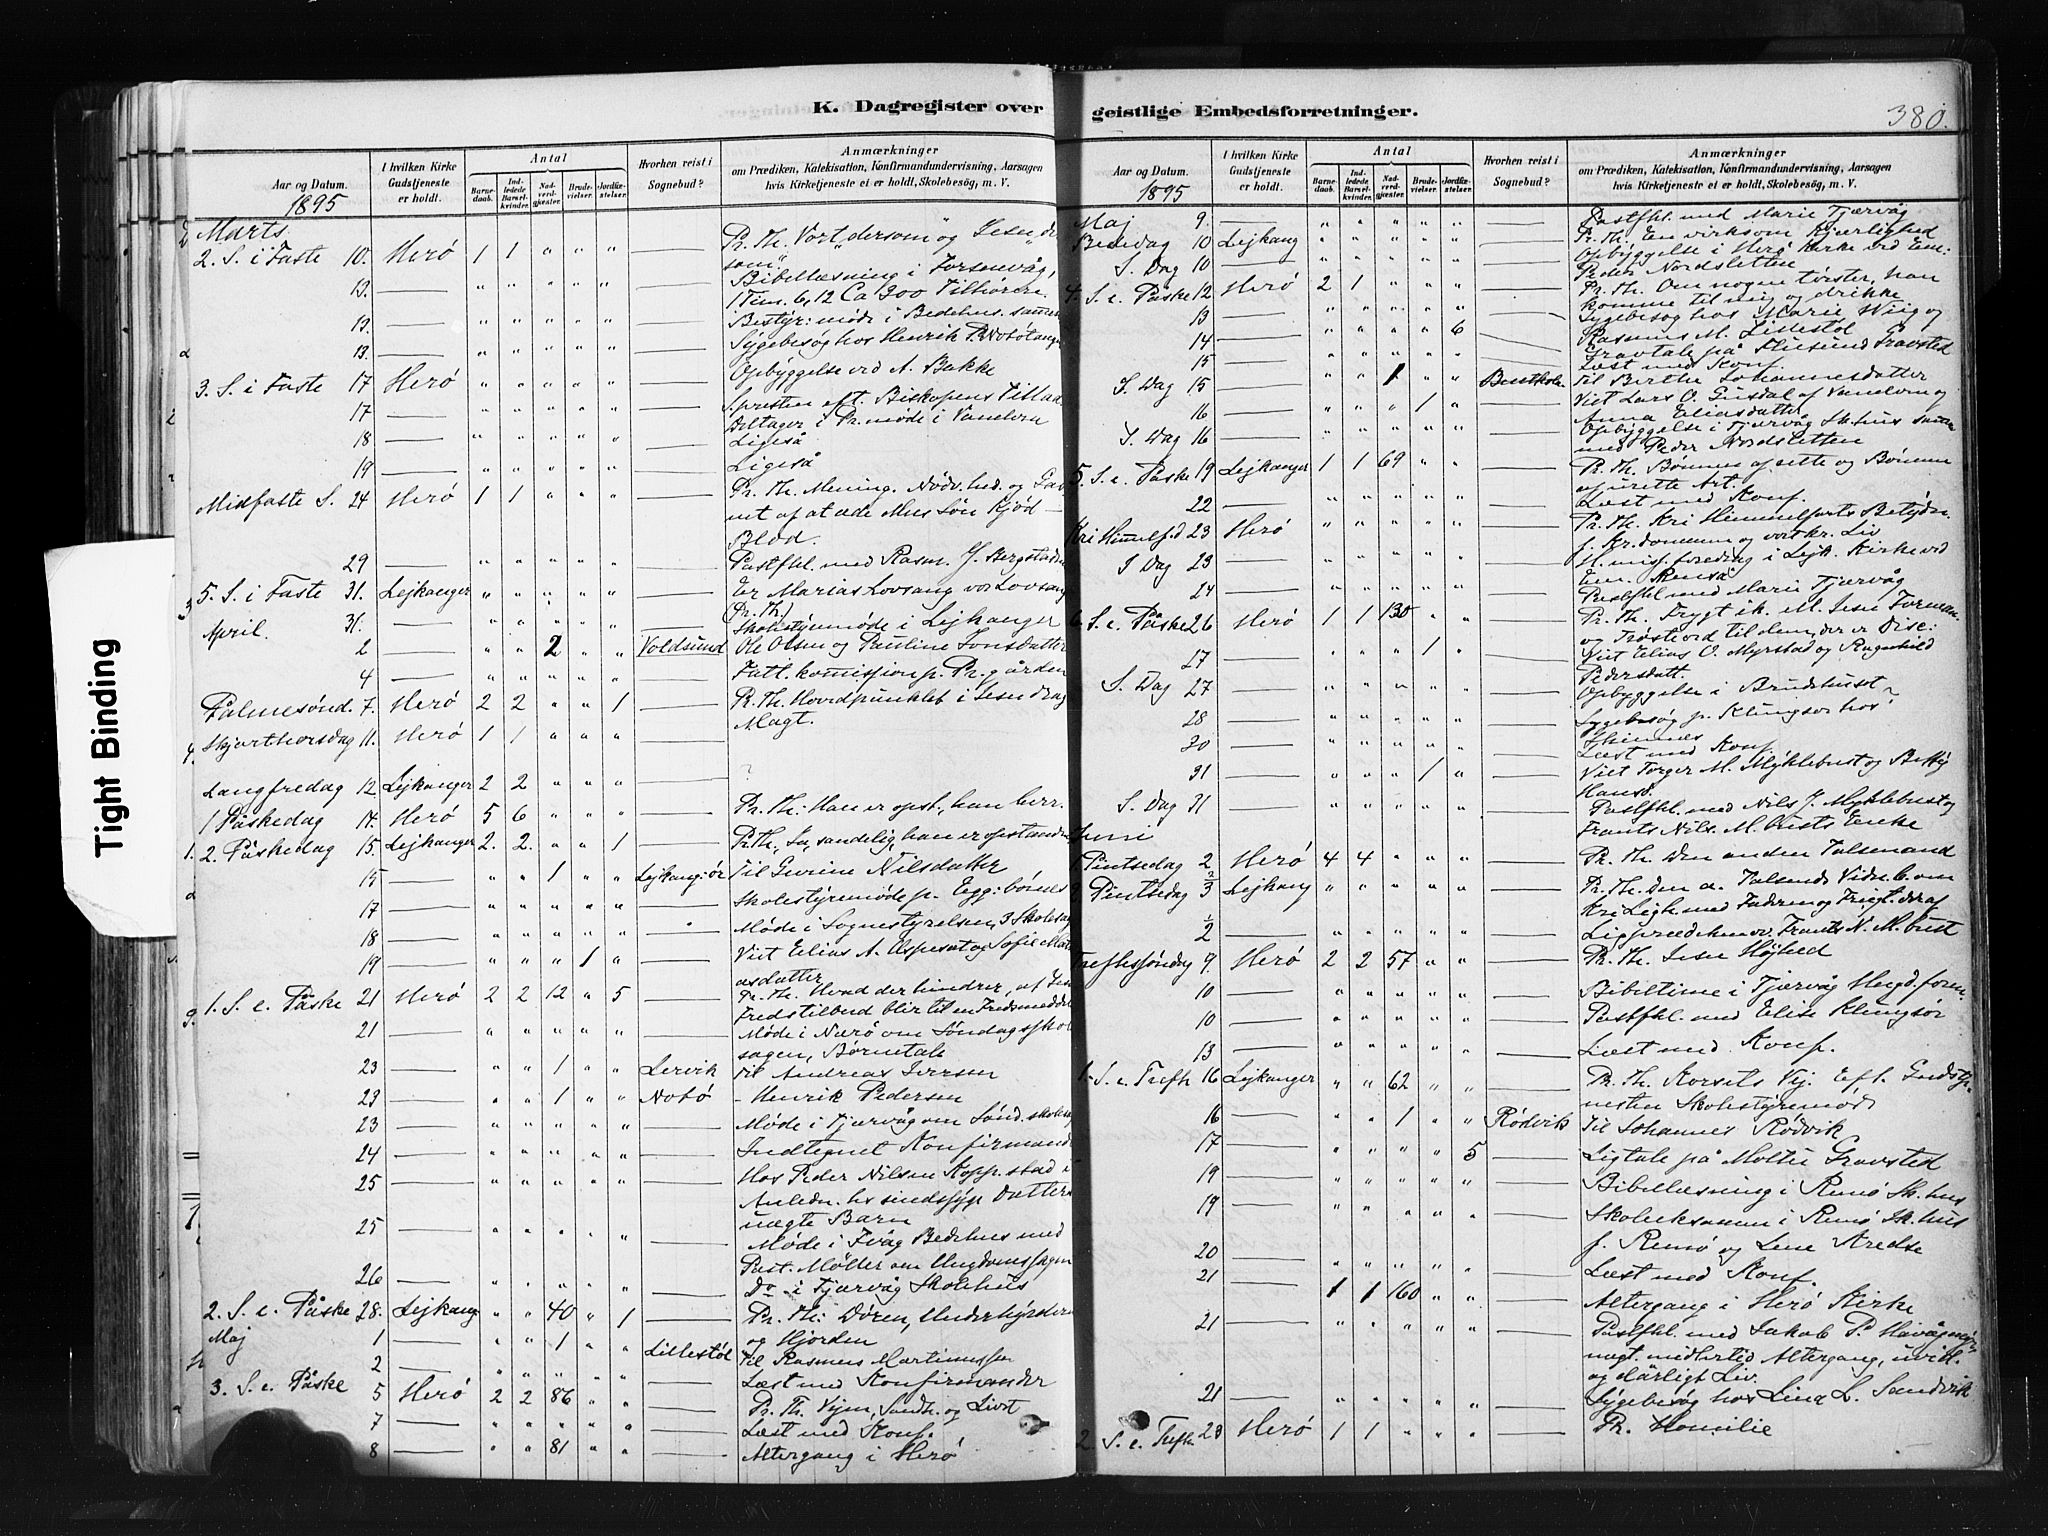 K. Dagregister over geistlige Embedsforretninger.
380.
Tight Binding
Aar og Datum. 1895
I hvilken Kirke Gudstjeneste er holdt.
Antal
Barnedaab.
Indledede Barselkvinder.
Nadverdgjester.
Brudevielser.
Jordfæstelser.
Hvorhen reist i Sognebud?
Anmærkninger
om Prædiken, Katekisation, Konfirmandundervisning, Aarsagen
hvis Kirketjeneste ei er holdt, Skolebesøg, m. V.
Marts
2. S. i Faste 10. Herö 1 1 " " " Pr. Th. Vort "dersom" og Jesu "der
som"
13. " " " " " Bibellæsning i
1 Tim. 6,12 Ca 300 Tilhörere
13. " " " " " Bestyr: möde i Bedehus. samme
13. " " " " " Sygebesög hos Henrik P.
Opbyggelse ved A. Bakke
3. S. i Faste 17 Herö " " " " " S.presten eft. Biskopens Tillad
17 " " " " " Deltager i Pr. möde i Vanelven
18 " " " " " Ligeså
19 " " " " " Ligeså
Midfaste S. 24 Herö 1 1 " " " Pr. Th. Mening. Nödv.hed. og Gav
net af at æde Mns Søn Kjöd
Blod.
29 " " " " " Pastfhl. med Rasm. J. Bergstad
5. S. i Faste 31. Lejkanger " " " " " Er Marias Lovsang vor Lovsang
Pr. Th.)
31. " " " " " Skolestyremöde i Lejkanger
April.
2 " " 2 " " Voldsund Ole Olsen og Pauline Jonsdatter
4 " " " " " Fatt. komission p. Pr. gården
Palmesönd. 7. Herö 2 2 " " 1 Pr. Th. Hovedpunktet i Jesu
Magt.
Skjærthorsdag 11. Herö 1 1 " " "
Langfredag 12 Lejkanger 2 2 " " " ?
1 Påskedag 14. Herö 5 6 " " " Pr. Th: Han er opst., han herr.
2. Påskedag 15. Lejkanger 2. 2. " " 1 Pr. Th. Ja, sandelig han er opstanden
15 " " 1 " " Lejkang:ör Til Gurine Nilsdatter
17 " " " " " Skolestyremöde p. Egg: bönes
18 " " " " " Möde i Sognestyrelsen, 3 Skolesag
19 " " " 1 " Viet Elias A. Aspesæt og Sofie Mat
iasdatter
1. S. e. Påske 21 Herö 2 2 12 " 5 Pr. Th. Hvad der hindrer, at Jesu
Fredstilbud blir til en Fredsmeddel
21 " " " " " Möde i Nærö om Söndagsskol
sagen, Börnetale
23 " " 1 " " Lervik Til Andreas Iversen
23 " " 1 " " Notö - Henrik Pedersen
23 " " " " " Möde i Tjærvåg om Sönd. skolesa
24 " " " " " Indtegnet Konfirmand
25 " " " " " Hos Peder Nilsen Kopp.stad i
Anledn. hs sindssyge Datters
uægte Barn
25 " " " " " Möde i Fråg Bedehus med
Past. Möller om Ungdomssagen
26 " " " " " Do i Tjærvåg Skolehus
2. S. e. Påske 28. Lejkang " " 40 " 1 Pr. Th: Dören, Underhyrdern
og Hjorden
Maj 1 " " 1 " " Lillestöl Til Rasmus Martinussen
2 " " " " " Læst med Konfirmander
3. S. e. Påske 5 Herö 2 2 86 " " Pr. Th. Vejen, Sandh. og Livet
7 " " " " " Læst med Konf.
8 " " 81 " " Altergang i Herö
Aar og Datum. 1895
I hvilken Kirke Gudstjeneste er holdt.
Antal
Barnedaab.
Indledede Barselkvinder.
Nadverdgjester.
Brudevielser.
Jordfæstelser.
Hvorhen reist i Sognebud?
Anmærkninger
om Prædiken, Katekisation, Konfirmandundervisning, Aarsagen
hvis Kirketjeneste ei er holdt, Skolebesøg, m. V.
Maj 9. " " " " " Pastfhl. med Marie Tjærvåg
Bededag 10 Lejkang " " " " " Pr. Th. En virksom Kjærlighed
S. Dag 10 " " " " " Opbyggelse i Herö Kirke ved Em:
Peder Nordsletten
4. S. e. Påske 12 Herö 2 1 " " " Pr. Th. Om nogen törster, han
komme til mig og drikke
13 " " " " " Sygebesög hos Marie Wiig og
Rasmus M. Lillestöl
14 " " " " 6 Gravtale på Flusund Gravsted
15 " " " " " Læst med Konf.
S. Dag 15 " " 1 " " Til Birthe Johannesdatter
16 " " " 1 " Viet Lars O. Gusdal af Vanelven og
Anna Eliasdatter
S. Dag 16 " " " " " Opbyggelse i Tjærvåg Sk.hus samm
med Peder Nordsletten
5. S. e. Påske 19 Lejkanger 1 1 69 " " Pr. Th. Bönnen af rette og Bönnen
af urette Art.
22 " " " " " Læst med Konf.
Kri Himmelf.d 23 Herö " " " " " Pr. Th. Kri Himmelfarts Betydn.
f. Kr.dommen og vort kr. Liv
S Dag 23 " " " " " H. miss. foredrag i Lejk. Kirke ved
Em. Remså
24 " " " " " Pastfhl med Marie Tjærvåg
6. S. e. Påske 26 Herö 1 1 130 " " Pr. Th. Frygt ik. M. Jesu Forman.
og Tröst ord til dem, der er Disc:
27 " " " 1 " Viet Elias O. Myrstad og Ragnhild
Pedersdatt.
S. Dag 27 " " " " " Opbyggelse i Brudehuset
28 " " " " " Sygebesög p. Klungsör hos
30 " " " " " Læst med Konf.
31 " " " 1 " Viet Torger M. Myklebust og
Hansd.
S. Dag 31 " " " " " Pastfhl. med Nils J. Myklebust og
Frants Nils. M. busts Enke
Juni
1 Pintsedag 2 Herö 4 4 " " " Pr. Th. Den anden Talsmand
2. Pintsedag 3 Lejkang " " " " " Pr. Th. Den a. Talsmds Vidn.b. om
Kri Ligh. med Faderen og Frugt. deraf
2 " " " " " Ligprædiken ov. Frants N. M.bust
Trefhs.söndag 9. Herö 2 2 57 " " Pr. Th. Jesu Höjhed
10 " " " " " Bibeltime i Tjærvåg Ungd.foren.
10 " " " " " Pastfhl. med Elise Klungsör
13 " " " " " Læst med Konf.
1. S. e. Trefh 16 Lejkanger " " 62 " " Pr. Th. Korsets Vej. Eft. Gudstj.
nesten Skolestyremöde
16 " " 1 " " Rödvik Til Johannes Rödvik
17 " " " " 5 Ligtale på Moltu Gravsted
19 " " " " " Bibellæsning i Remö Sk.hus
19 " " " " " Skoleeksamen i Remö Sk.hus
f. Remö og
20 " " " " " Læst med Konf.
21 1 1 160 " " Altergang i Herö Kirke
21 " " " " " Pastfhl. med Jakob P.
nægt. midlertid Altergang,
og dårligt Liv.
21 " " " " " Sygebesög hos Lina L. Sandvik
2. S. e. Trefh 23 Herö 1 1 " " " Pr. Homilie